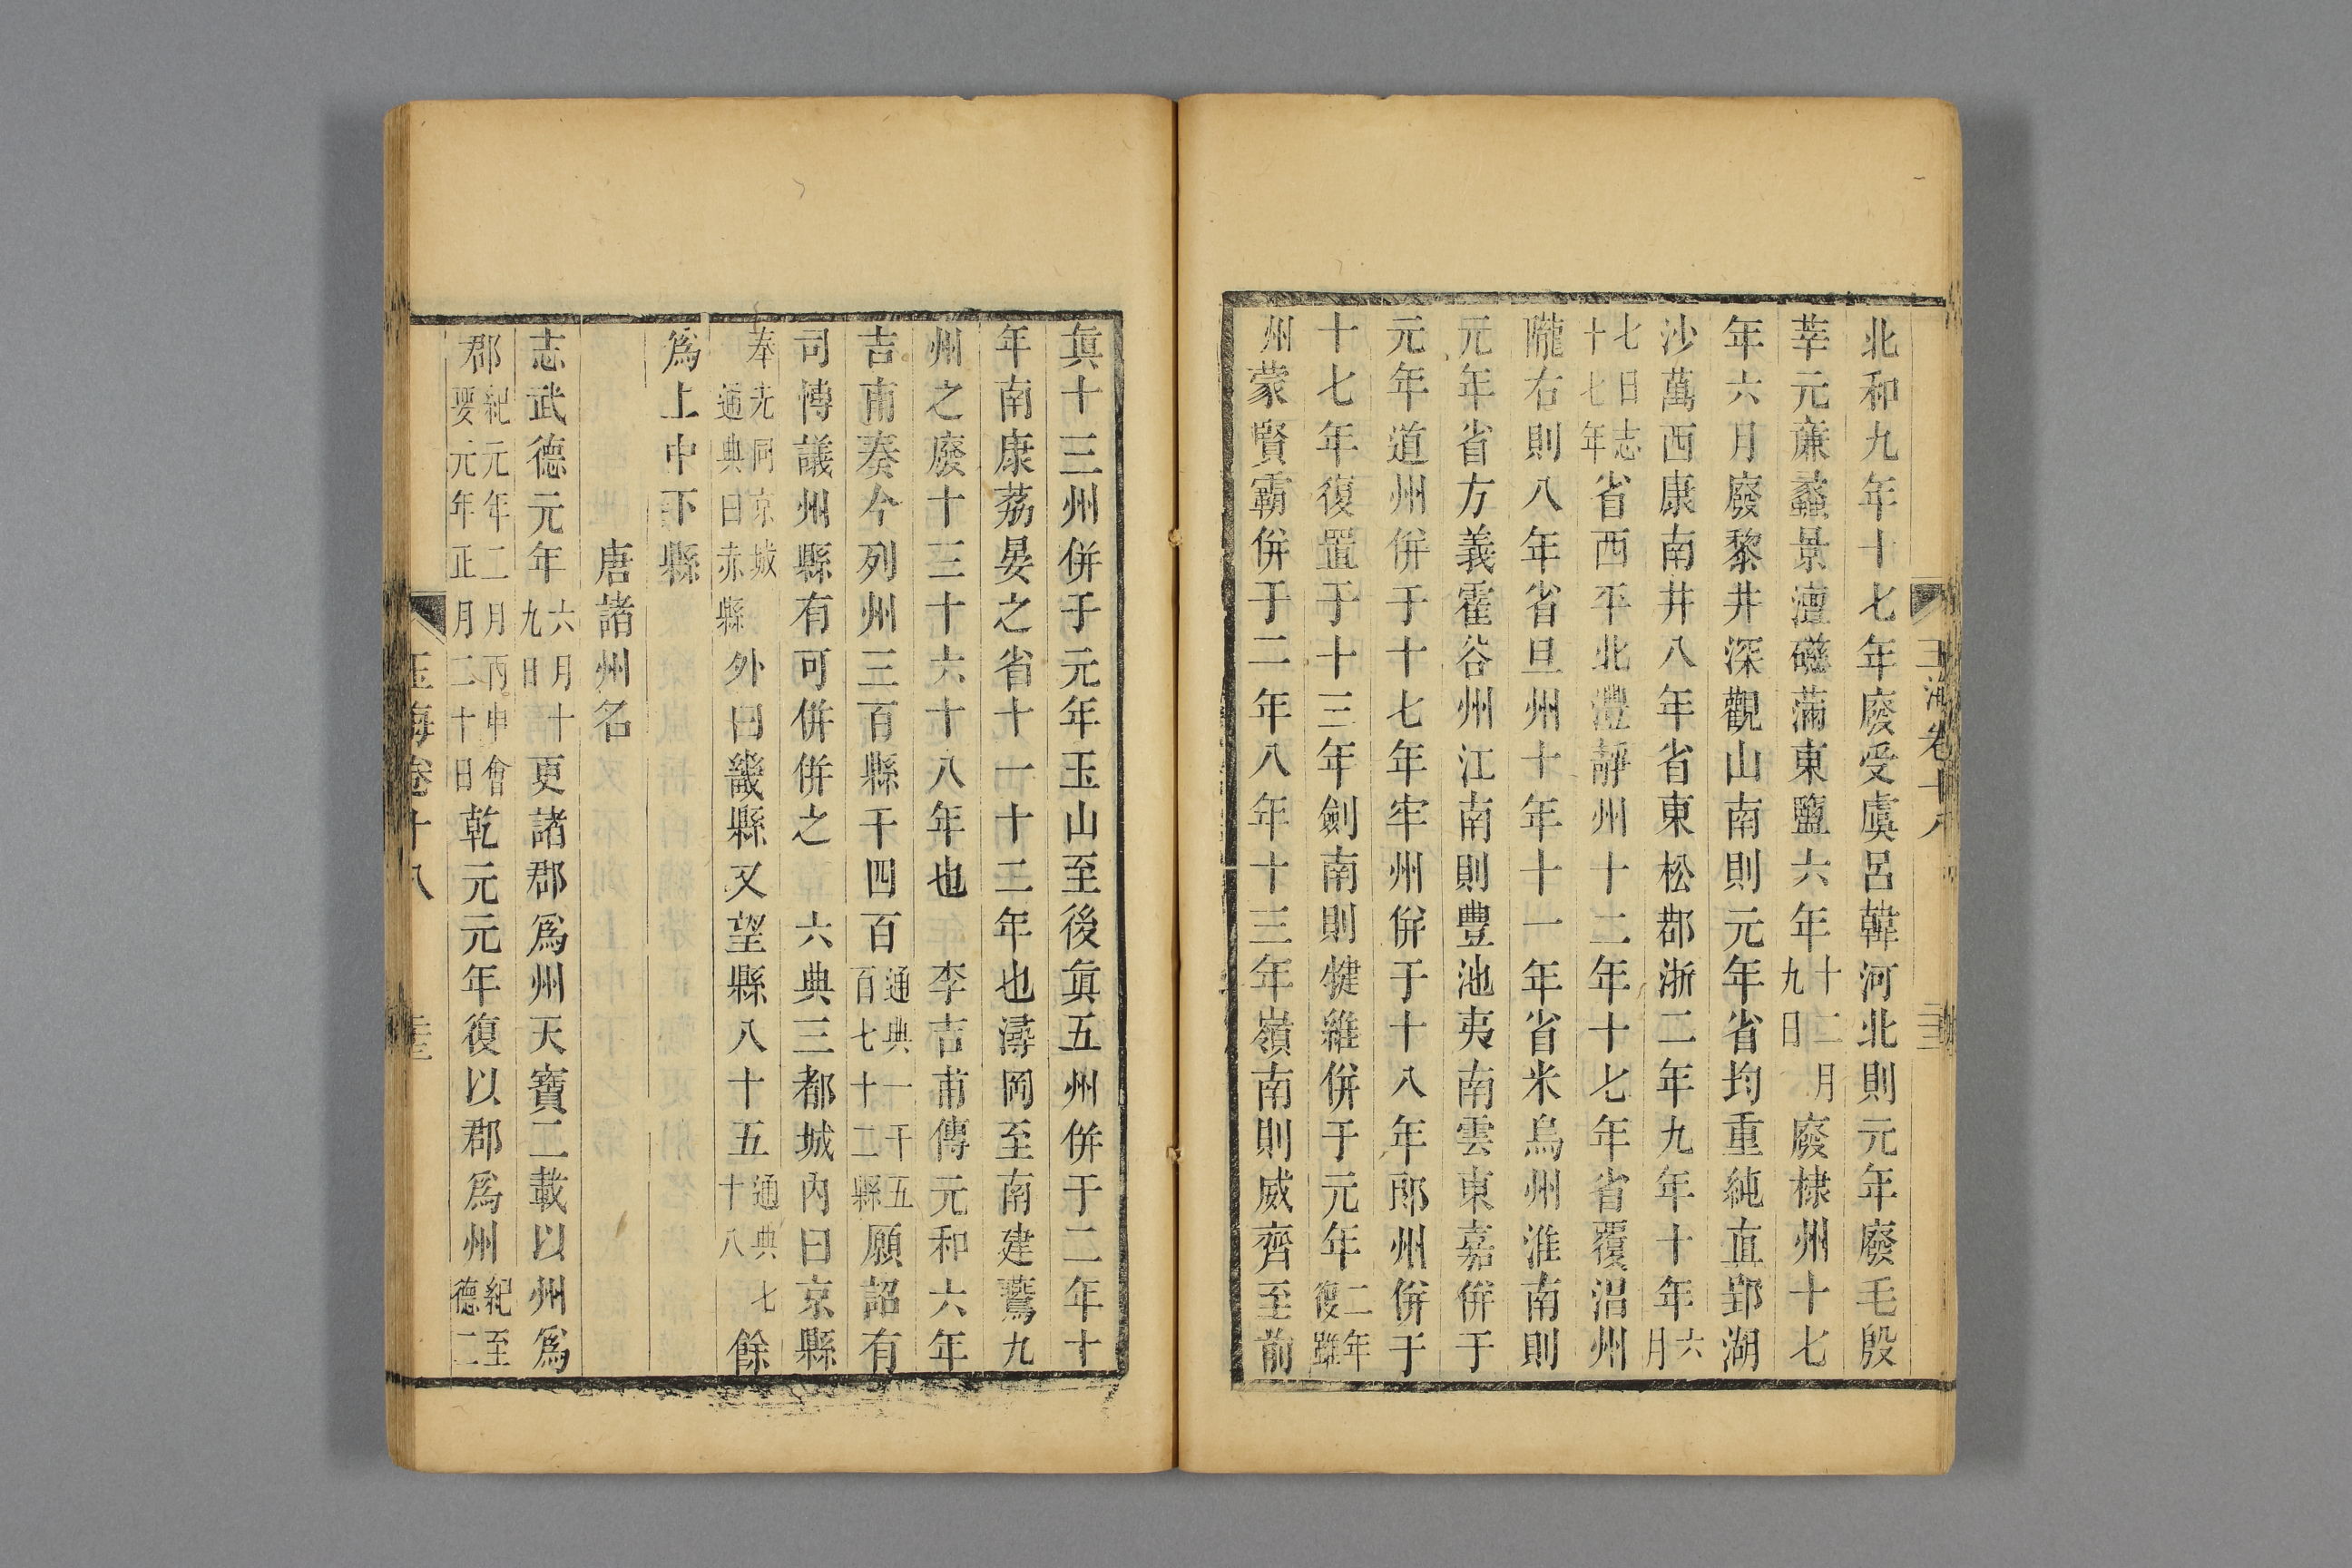 玉海卷十八
北和九年十七年廢受虞呂韓河北則元年廢毛殷
莘元㢘蠡景澶磁蒲東鹽六年十二月九日廢棣州十七
年六月廢黎井深觀山南則元年省均重純直郢湖
沙萬西康南井八年省東松郡浙二年九年十年六月
七日志十七年省西平北灃靜州十二年十七年省覆沼州
隴右則八年省旦州十年十一年省米烏州淮南則
元年省方義霍谷州江南則豐池夷南雲東嘉併于
元年道州併于十七年牢州併于十八年郎州併于
十七年復置于十三年劍南則犍維併于元年二年復雖
州蒙賢霸併于二年八年十三年嶺南則威齊至前
眞十三州併于元年玉山至後眞五州併于二年十
年南康荔晏之省十一十二年也潯岡至南建鶱九
州之廢十三十六十八年也 李吉甫傳元和六年
吉甫奏今列州三百縣千四百通典一千五百七十二縣願詔有
司愽議州縣有可併併之 六典三都城內曰京縣
奉先同京城通典曰赤縣外曰畿縣又望縣八十五通典七十八餘
爲上中下縣
唐諸州名
志武德元年六月十九日更諸郡爲州天寶二載以州爲
郡紀元年二月丙申會要元年正月二十日乾元元年復以郡爲州紀至德二
玉海卷十八